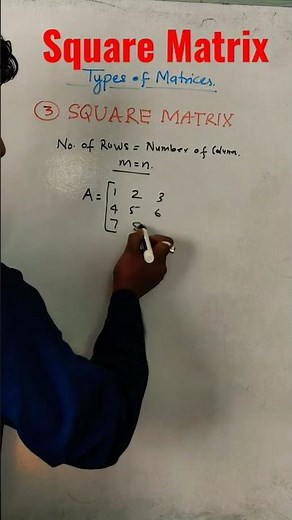 Square Matrix
Types of Matrices.
③ SQUARE MATRIX
No. of Rows = Number of Column.
m = n.
A = [ 1 2 3
4 5 6
7 8